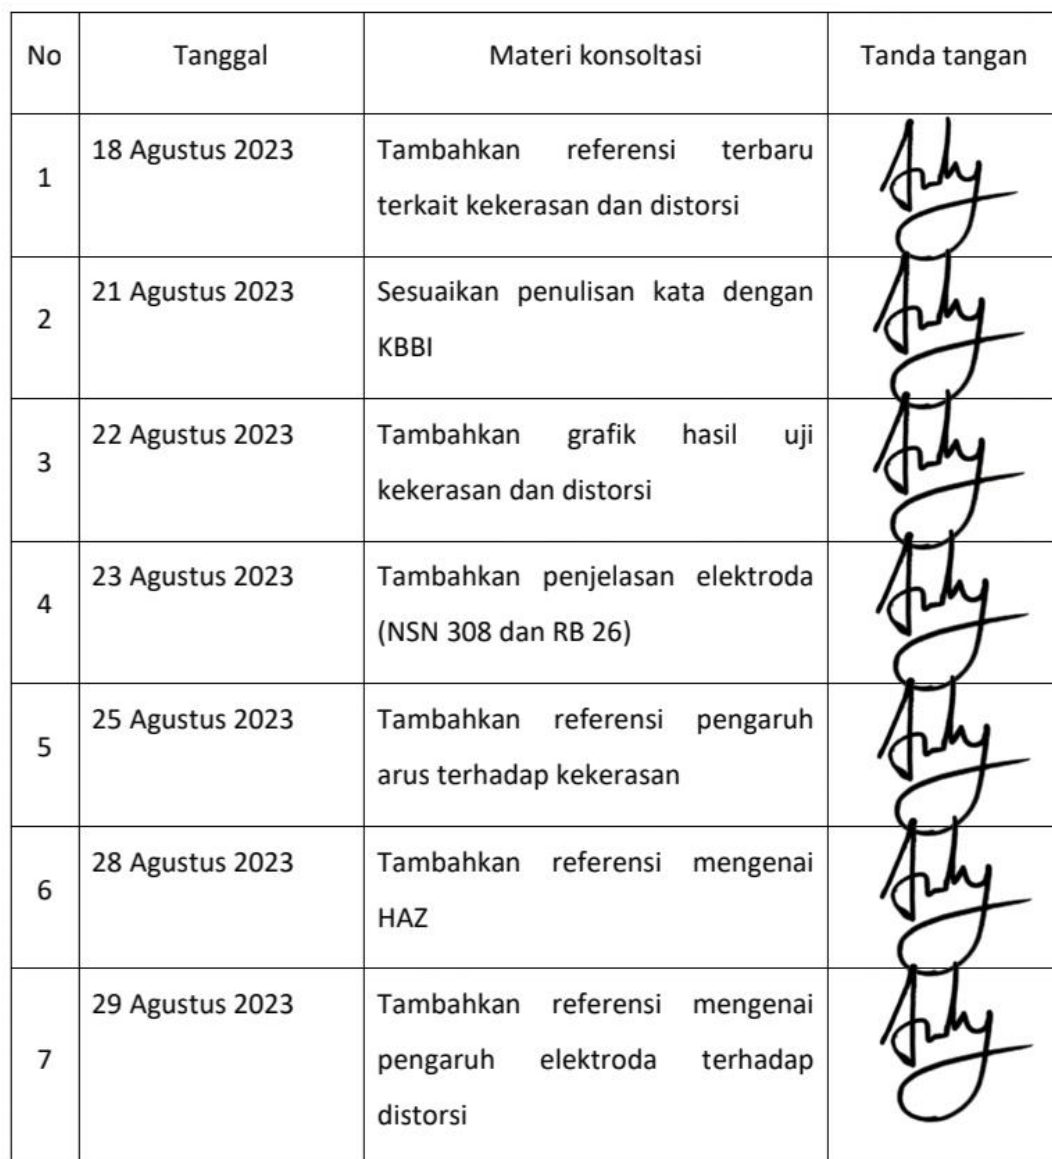 No Tanggal Materi konsoltasi Tanda tangan
1 18 Agustus 2023 Tambahkan referensi terbaru
terkait kekerasan dan distorsi
2 21 Agustus 2023 Sesuaikan penulisan kata dengan
KBBI
3 22 Agustus 2023 Tambahkan grafik hasil uji
kekerasan dan distorsi
4 23 Agustus 2023 Tambahkan penjelasan elektroda
(NSN 308 dan RB 26)
5 25 Agustus 2023 Tambahkan referensi pengaruh
arus terhadap kekerasan
6 28 Agustus 2023 Tambahkan referensi mengenai
HAZ
7 29 Agustus 2023 Tambahkan referensi mengenai
pengaruh elektroda terhadap
distorsi